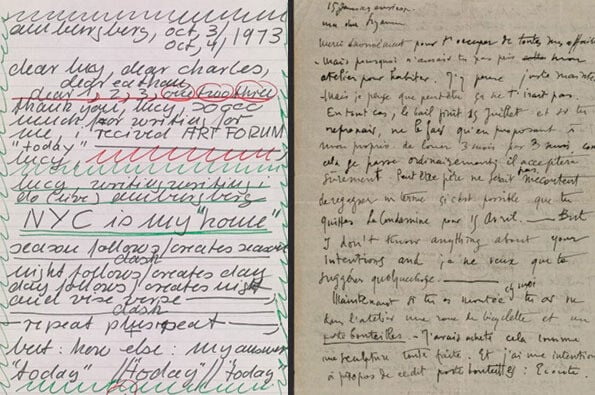 amherstburg, oct, 3, 1973
oct, 4,
dear lucy, dear charles,
dear everyone
dear 1, 2, 3, one two three
thank you, lucy, so
much, for writing for
me, i recived ART FORUM
"today"
lucy,
lucy, writing, writing,
do (i live)
NYC is my "home"
season follows/creates season
dash
night follows/creates day
day follows/creates night
and vise verse
dash
repeat plus repeat
but: how else: my answer
"today" "today" "today"
15 Janvier environ
ma chère Suzanne
Merci énormément pour t'occuper de toutes mes affaires
- Mais pourquoi n'aurais tu pas pris mon
atelier pour habiter. J'y pense juste maintenant
Mais je pense que peut être ça ne t'irait pas.
En tout cas, le bail finit 15 Juillet et si tu
reprenais, ne le fais qu'en proposant à
mon proprio. de louer 3 mois par 3 mois, comme
cela se passe ordinairement; il acceptera
sûrement. Peut être père ne serait pas mécontent
de regagner un terme si c'est possible que tu
quittes La Condamine pour 15 Avril. — But
I don't know anything about your
intentions and je ne veux que te
suggérer quelquechose.
Maintenant si tu es montée chez moi tu as vu
dans l'atelier une roue de bicyclette et un
porte bouteilles. - J'avais acheté cela comme
une sculpture toute faite. Et j'ai une intention
à propos de ce dit porte bouteilles : Ecoute.